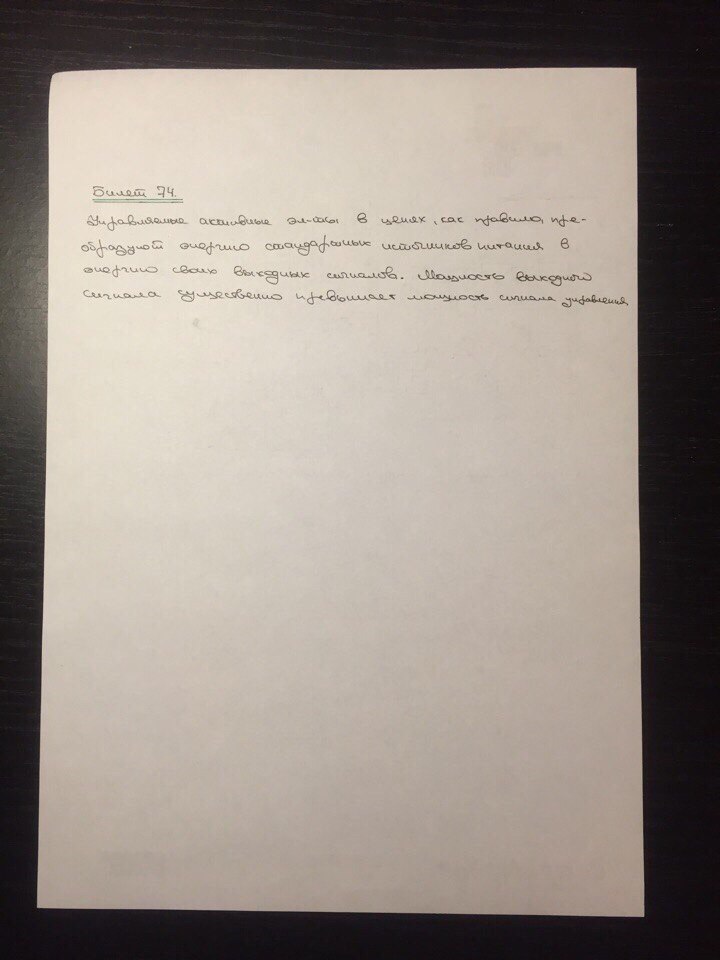 Билет 74.
Управляемые активные эл-ты в цепях, как правило, пре-
образуют энергию стандартных источников питания в
энергию своих выходных сигналов. Мощность выходного
сигнала существенно превышает мощность сигнала управления